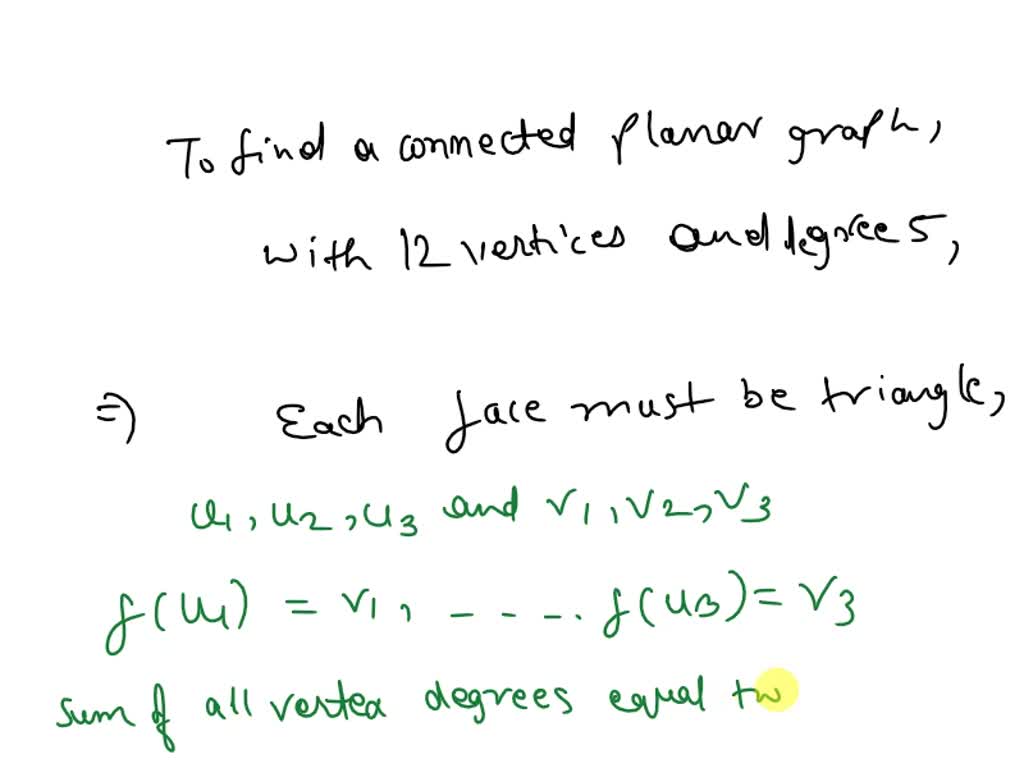 To find a connected planar graph,
with 12 vertices and degree 5,
=) Each face must be triangle,
u1, u2, u3 and v1, v2, v3
f(u1) = v1, - - - . f(u3) = v3
sum of all vertex degrees equal tw